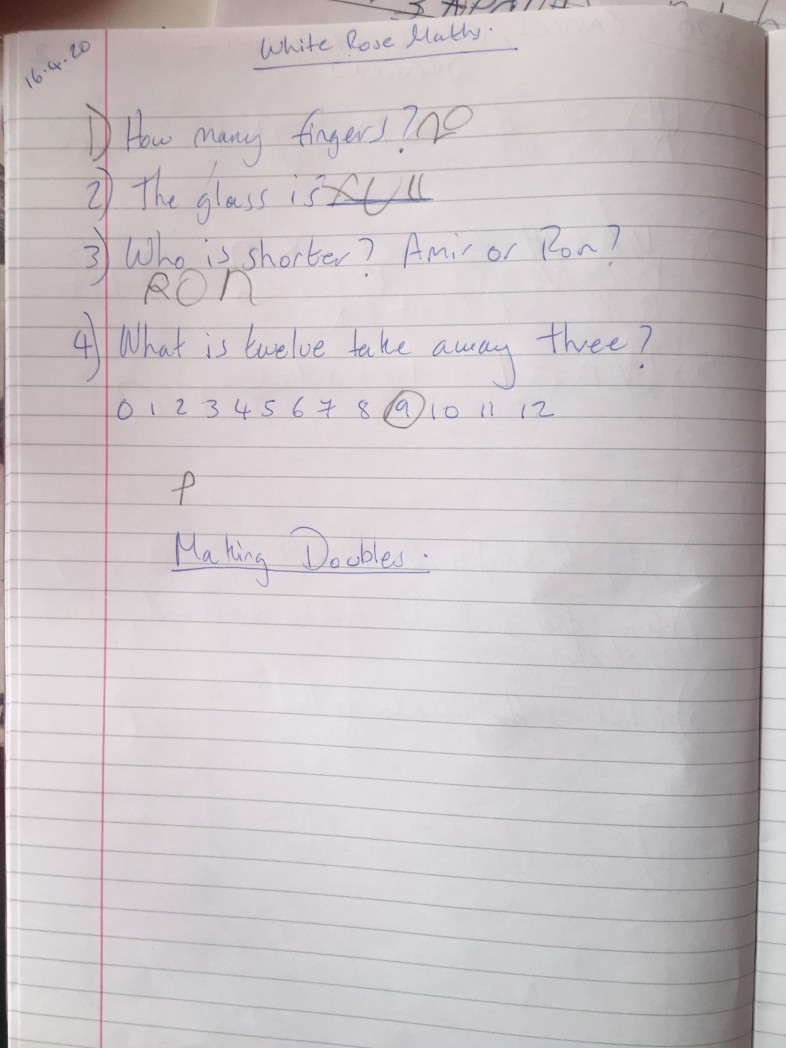 16.4.20
White Rose Maths.
1) How many fingers? 20
2) The glass is full
3) Who is shorter? Amir or Ron?
RON
4) What is twelve take away three?
0 1 2 3 4 5 6 7 8 9 10 11 12
Making Doubles.